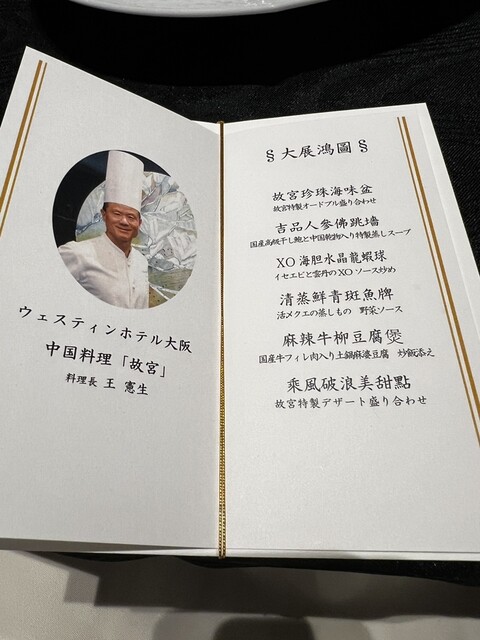 ウェスティンホテル大阪
中国料理「故宮」
料理長 王 憲生
§ 大展鴻圖 §
故宮珍珠海味盆
故宮特製オードブル盛り合わせ
吉品人參佛跳墻
国産高級干し鮑と中国乾物入り特製蒸しスープ
XO海胆水晶龍蝦球
イセエビと雲丹のXOソース炒め
清蒸鮮青斑魚牌
活メクエの蒸しもの 野菜ソース
麻辣牛柳豆腐煲
国産牛フィレ肉入り土鍋麻婆豆腐 炒飯添え
乘風破浪美甜點
故宮特製デザート盛り合わせ